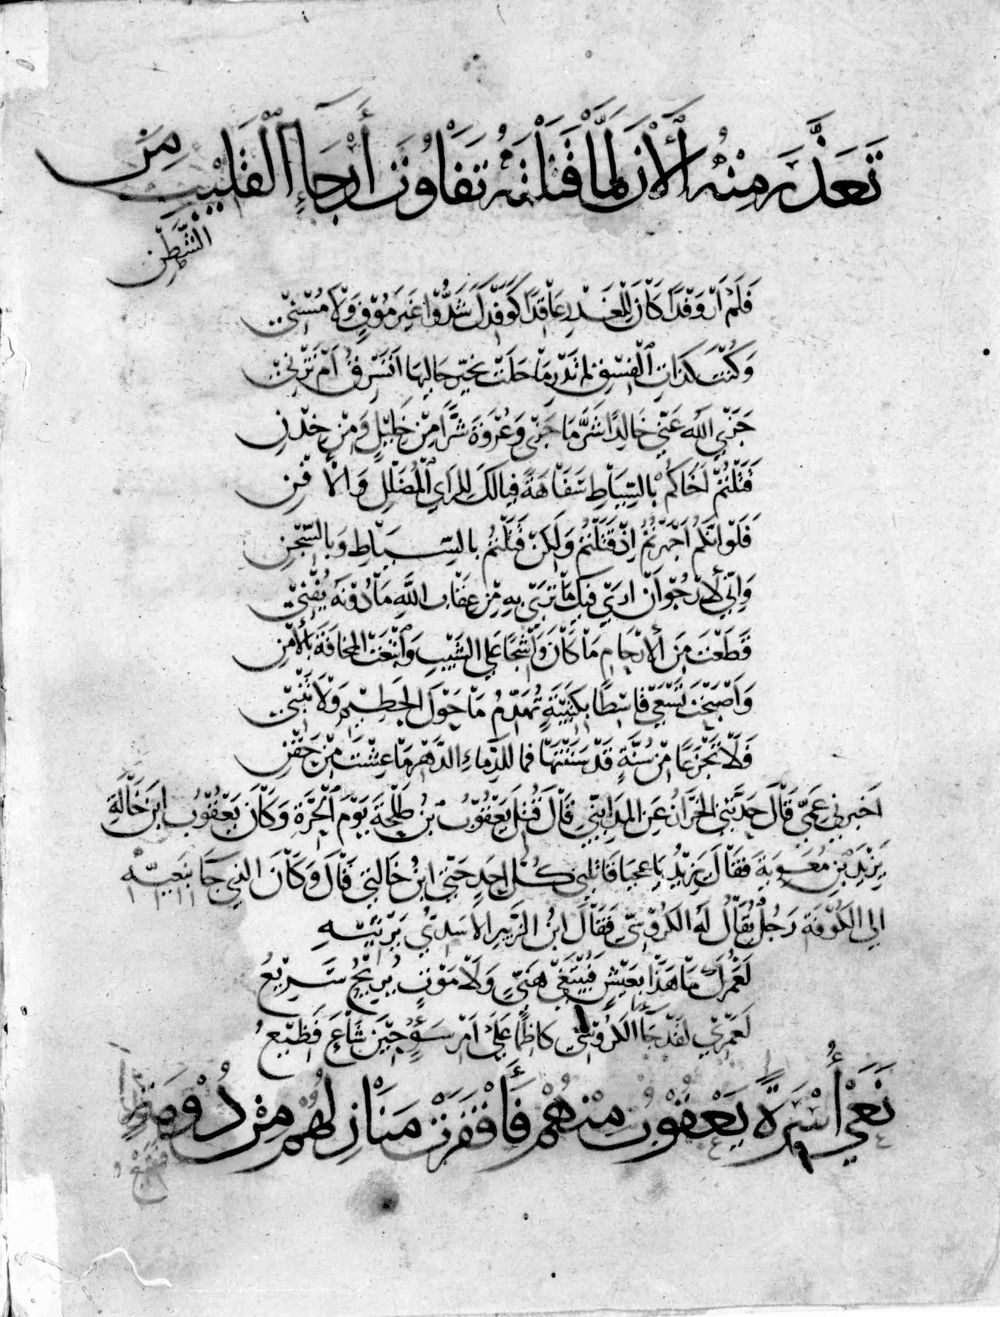 تَعَذَّرَ مِنْهُ ٱلْآنَ لَمَّا قَتَلْتَهُ تَفَاوُتَ أَرْجَاءِ ٱلْقَلِيبِ مِنَ
الشَّطَنِ
فَلَمْ أَرَ وَفْدًا كَانَ لِلْغَدْرِ عَاقِدًا كَوَفْدِكَ شَدُّوا غَيْرَ مُوفٍ وَلَا مُسْنِي
وَكُنْتَ كَذَاتِ ٱلْفِسْقِ لَمْ تَدْرِ مَا حَلَتْ تَخَيَّرُ حَالَيْهَا أَتَسْرِقُ أَمْ تَزْنِي
جَزَى اللَّهُ عَنِّي خَالِدًا شَرَّ مَا جَزَى وَعُرْوَةَ شَرًّا مِنْ خَلِيلٍ وَمِنْ خِدْنِ
قَتَلْتُمْ أَخَاكُمْ بِالسِّيَاطِ سَفَاهَةً فَيَا لَكَ لِلرَّأْيِ ٱلْمُضَلَّلِ وَالْأَفْنِ
فَلَوْ أَنَّكُمْ أَجْهَزْتُمُ إِذْ قَتَلْتُمُ وَلَكِنْ قَتَلْتُمْ بِالسِّيَاطِ وَبِالسِّجْنِ
وَإِنِّي لَأَرْجُو أَنْ أَرَى فِيكَ مَا تَرَى بِهِ مِنْ عِقَابِ اللَّهِ مَا دُونَهُ يُفْنِي
قَطَعْتَ مِنَ ٱلْأَرْحَامِ مَا كَانَ وَاشِجًا عَلَى الشَّيْبِ وَٱبْتَعْتَ الْمَخَافَةَ بِالْأَمْنِ
وَأَصْبَحْتَ تَسْعَى قَاسِطًا بِكَتِيبَةٍ تُهَدِّمُ مَا حَوْلَ الْحَطِيمِ وَلَا تَبْنِي
فَلَا تَجْزَعَنْ مِنْ سُنَّةٍ قَدْ سَنَنْتَهَا فَمَا لِلدِّمَاءِ الدَّهْرَ مَا عِشْتَ مِنْ حَقْنِ
أَخْبَرَنِي عَمِّي قَالَ حَدَّثَنِي الْخَرَّازُ عَنِ الْمَدَائِنِيِّ قَالَ قُتِلَ يَعْقُوبُ بْنُ طَلْحَةَ يَوْمَ ٱلْحَرَّةِ وَكَانَ يَعْقُوبُ ابْنَ خَالَةِ
يَزِيدَ بْنِ مُعَوِيَةَ فَقَالَ يَزِيدُ يَا عَجَبًا قَاتَلَنِي كُلُّ أَحَدٍ حَتَّى ابْنُ خَالَتِي قَالَ وَكَانَ الَّذِي جَا بِنَعِيِّهِ
إِلَى الْكُوفَةِ رَجُلٌ يُقَالُ لَهُ الْكَرَوَّسُ فَقَالَ ابْنُ الزَّبِيرِ الْأَسَدِيُّ يَرْثِيهِ
لَعَمْرُكَ مَا هَذَا بِعَيْشٍ فَيُبْتَغَى هَنِيٍّ وَلَا مَوْتٍ يُرِيحُ سَرِيعُ
لَعَمْرِي لَقَدْ جَاءَ الْكَرَوَّسُ كَاظِمًا عَلَى أَمْرِ سَوْءٍ حِينَ شَاعَ فَظِيعُ
نَعَى أُسْرَةً يَعْقُوبُ مِنْهُمْ فَأَقْفَرَتْ مَنَازِلُهُمْ مِنْ دُومَةٍ
فَنَقِيعُ